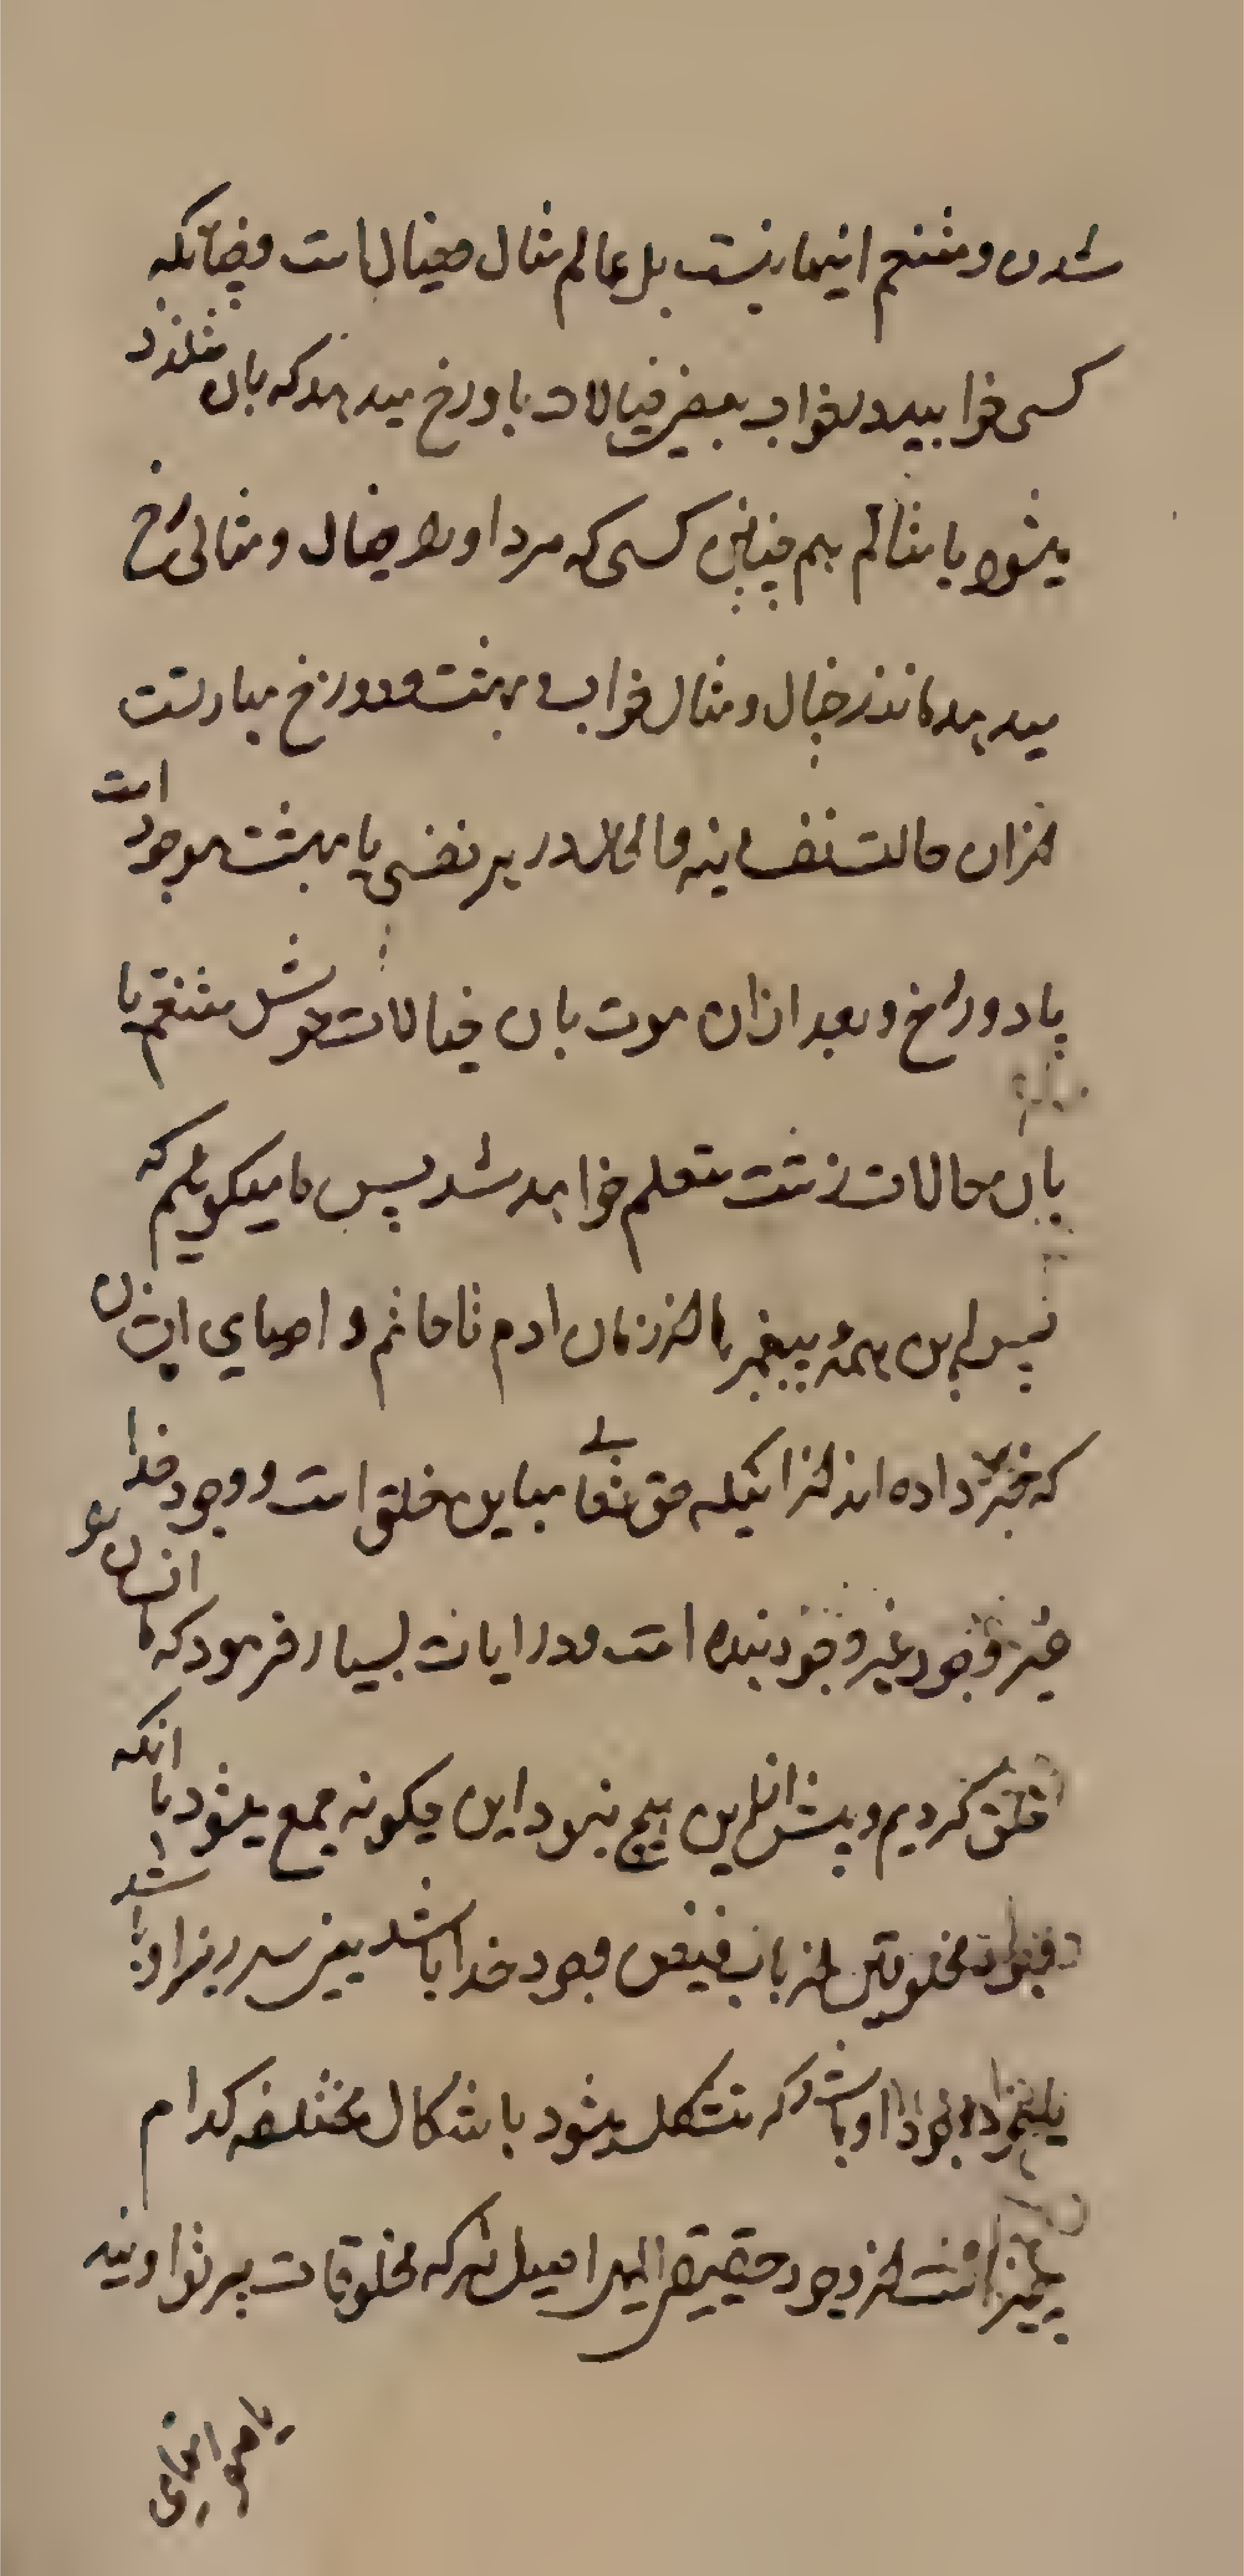 شدن و متنعم اینجا نیست بل عالم مثال و خیال است و چنانکه
کسی خوابید در خواب بعضی خیالات باو رخ میدهد که بان متلذذ
میشود یا متالم هم چنین کسی که مرد او را خیال و مثالی رخ
میدهد مانند خیال و مثال خواب و بهشت و دوزخ عبارتست
از ان حالت نفسانیه و الحال در هر نفسی یا بهشت موجود است
یا دوزخ و بعد از ان موت بان خیالات خوش متنعم یا
بان حالات زشت متعلم خواهد شد پس ما میکوئیم که
پس این همه پیغمبر ها از زمان ادم تا خاتم و اوصیای ایشان
که خبر داده اند از اینکه حق تعالی مباین خلق است و وجود خدا
غیر وجود بنده است و در ایات بسیار فرمود که ما انسان را
خلق کردیم و پیش از این هیچ نبود این چکونه جمع میشود با انکه
وجود مخلوقین از باب فیض وجود خدا باشد یعنی سر ریز او باشد
یا وجود او باشد که متشکل میشود باشکال مختلفه کدام
پیغمبر است از وجود حقیقی الهی اصیل که مخلوقات پرتو اویند
یا موجهای